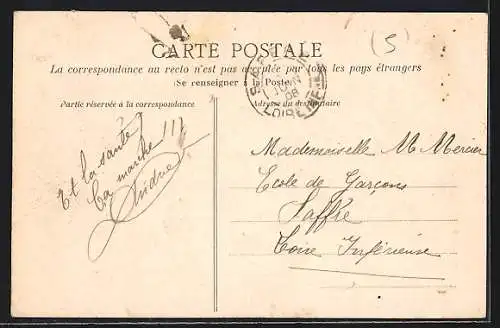 (5)
CARTE POSTALE
La correspondance au recto n'est pas acceptée par tous les pays étrangers
(Se renseigner à la Poste)
Partie réservée à la correspondance
Adresse du destinataire
JUIN
08
LOIRE INF
Et la santé
Ça marche !!!
Mademoiselle M Mercier
Ecole de Garçons
Saffré
Loire Inférieure